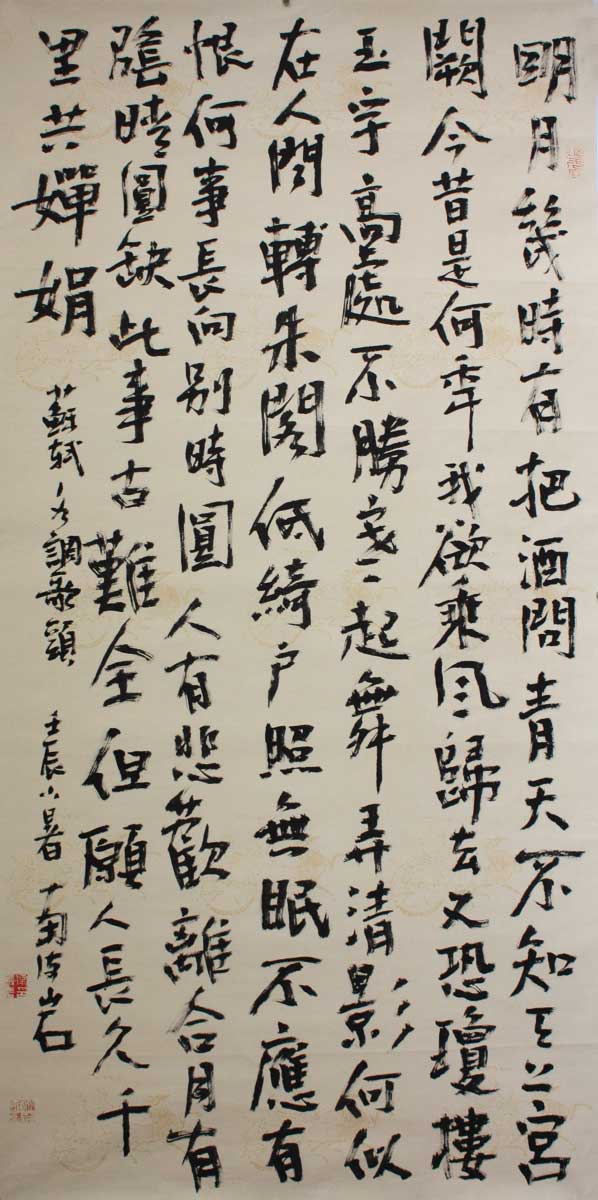 明月幾時有把酒問青天不知天上宮
闕今昔是何年我欲乘風歸去又恐瓊樓
玉宇高處不勝寒起舞弄清影何似
在人間轉朱閣低綺戶照無眠不應有
恨何事長向別時圓人有悲歡離合月有
陰晴圓缺此事古難全但願人長久千
里共嬋娟
蘇軾水調歌頭 壬辰小暑 岩